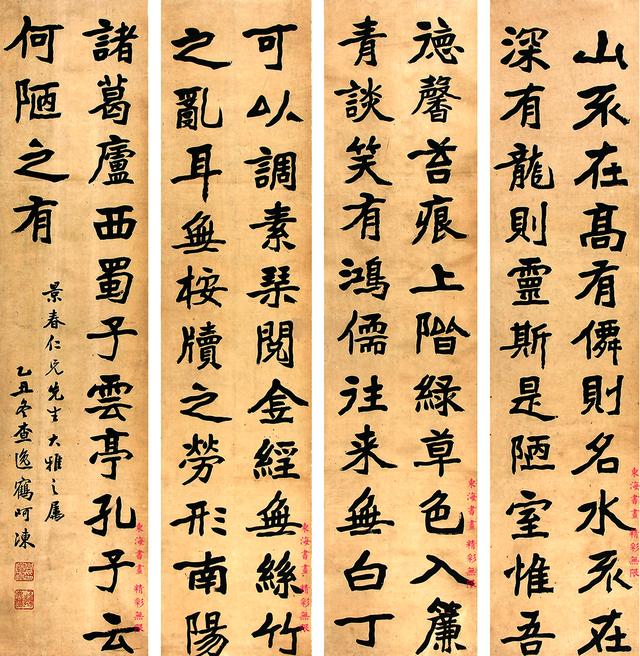 山不在髙有僊則名水不在
深有龍則靈斯是陋室惟吾
徳馨苔痕上階綠草色入簾
青談笑有鴻儒往来無白丁
可以調素琴閱金經無絲竹
之亂耳無桉牘之勞形南陽
諸葛廬西蜀子雲亭孔子云
何陋之有
景春仁兄先生大雅之屬
乙丑冬查逸鶴呵凍
東海書畫 精彩無限
東海書畫 精彩無限
東海書畫 精彩無限
東海書畫 精彩無限